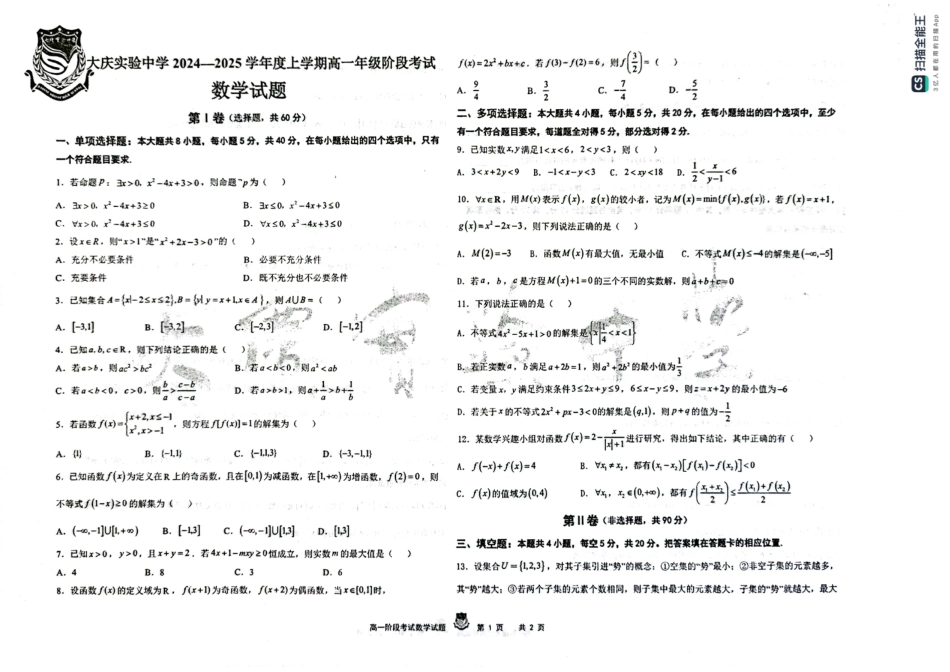 大庆实验中学 2024—2025 学年度上学期高一年级阶段考试
数学试题
第 I 卷（选择题，共 60 分）
一、单项选择题：本大题共 8 小题，每小题 5 分，共 40 分，在每小题给出的四个选项中，只有
一个符合题目要求.
1．若命题 p：∃x>0，x²-4x+3>0，则命题¬p 为（ ）
A．∃x>0，x²-4x+3≥0 B．∃x≤0，x²-4x+3≤0
C．∀x>0，x²-4x+3≤0 D．∀x≤0，x²-4x+3≤0
2．设 x∈R，则“x>1”是“x²+2x-3>0”的（ ）
A．充分不必要条件 B．必要不充分条件
C．充要条件 D．既不充分也不必要条件
3．已知集合 A={x|-2≤x≤2},B={y|y=x+1,x∈A}，则 A∪B=（ ）
A．[-3,1] B．[-3,2] C．[-2,3] D．[-1,2]
4．已知 a,b,c∈R，则下列结论正确的是（ ）
A．若 a>b，则 ac²>bc² B．若 a<b<0，则 a²<ab
C．若 a<b<0，c>0，则 b/a>(c-b)/(c-a) D．若 a>b>1，则 a+1/a>b+1/b
5．若函数 f(x)={x+2,x≤-1 x²,x>-1，则方程 f[f(x)]=1 的解集为（ ）
A．{1} B．{-1,1} C．{-1,1,3} D．{-3,-1,1}
6．已知函数 f(x) 为定义在 R 上的奇函数，且在[0,1)为减函数，在[1,+∞)为增函数，f(2)=0，则
不等式 f(1-x)≥0 的解集为（ ）
A．(-∞,-1]∪[1,+∞) B．[-1,3] C．(-∞,-1]∪[1,3] D．[1,3]
7．已知 x>0，y>0，且 x+y=2．若 4x+1-mxy≥0 恒成立，则实数 m 的最大值是（ ）
A．4 B．8 C．3 D．6
8．设函数 f(x) 的定义域为 R，f(x+1) 为奇函数，f(x+2) 为偶函数，当 x∈[0,1]时，
f(x)=2x²+bx+c．若 f(3)-f(2)=6，则 f(3/2)=（ ）
A．9/4 B．3/2 C．-7/4 D．-5/2
二、多项选择题：本大题共 4 小题，每小题 5 分，共 20 分，在每小题给出的四个选项中，至少
有一个符合题目要求，每道题全对得 5 分，部分选对得 2 分.
9．已知实数 x,y 满足 1<x<6，2<y<3，则（ ）
A．3<x+2y<9 B．-1<x-y<3 C．2<xy<18 D．1/2<x/(y-1)<6
10．∀x∈R，用 M(x) 表示 f(x)，g(x) 的较小者，记为 M(x)=min{f(x),g(x)}，若 f(x)=x+1，
g(x)=x²-2x-3，则下列说法正确的是（ ）
A．M(2)=-3 B．函数 M(x) 有最大值，无最小值 C．不等式 M(x)≤-4 的解集是(-∞,-5]
D．若 a，b，c 是方程 M(x)+1=0 的三个不同的实数解，则 a+b+c=0
11．下列说法正确的是（ ）
A．不等式 4x²-5x+1>0 的解集是{x|1/4<x<1}
B．若正实数 a，b 满足 a+2b=1，则 a²+2b² 的最小值为 1/3
C．若变量 x，y 满足约束条件 3≤2x+y≤9，6≤x-y≤9，则 z=x+2y 的最小值为 -6
D．若关于 x 的不等式 2x²+px-3<0 的解集是(q,1)，则 p+q 的值为 -1/2
12．某数学兴趣小组对函数 f(x)=2-x/(|x|+1) 进行研究，得出如下结论，其中正确的有（ ）
A．f(-x)+f(x)=4 B．∀x₁≠x₂，都有(x₁-x₂)[f(x₁)-f(x₂)]<0
C．f(x) 的值域为(0,4) D．∀x₁，x₂∈(0,+∞)，都有 f((x₁+x₂)/2)≤(f(x₁)+f(x₂))/2
第 II 卷（非选择题，共 90 分）
三、填空题：本题共 4 小题，每空 5 分，共 20 分。把答案填在答题卡的相应位置.
13．设集合 U={1,2,3}，对其子集引进“势”的概念：①空集的“势”最小；②非空子集的元素越多，
其“势”越大；③若两个子集的元素个数相同，则子集中最大的元素越大，子集的“势”就越大，最大
高一阶段考试数学试题 第 1 页 共 2 页
CS 扫描全能王
3亿人都在用的扫描App